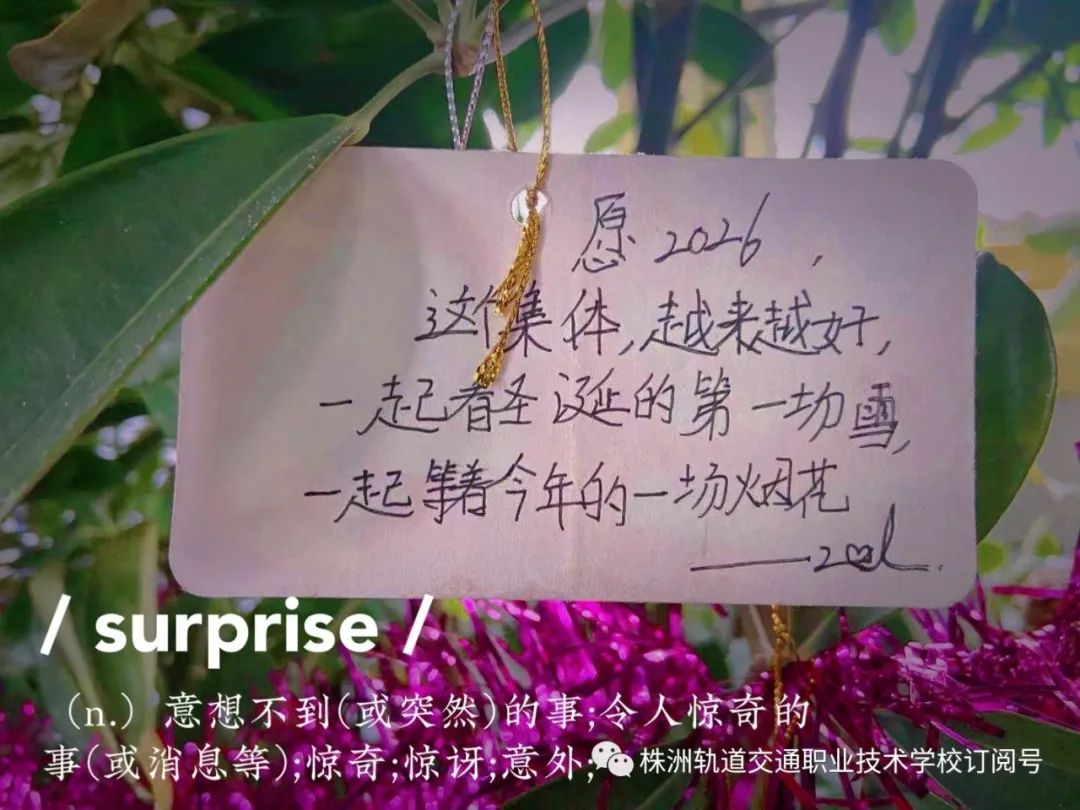 愿2026,
这个集体,越来越好,
一起看圣诞的第一场雪,
一起等着今年的一场烟花
/ surprise /
(n.) 意想不到(或突然)的事;令人惊奇的
事(或消息等);惊奇;惊讶;意外;
株洲轨道交通职业技术学校订阅号